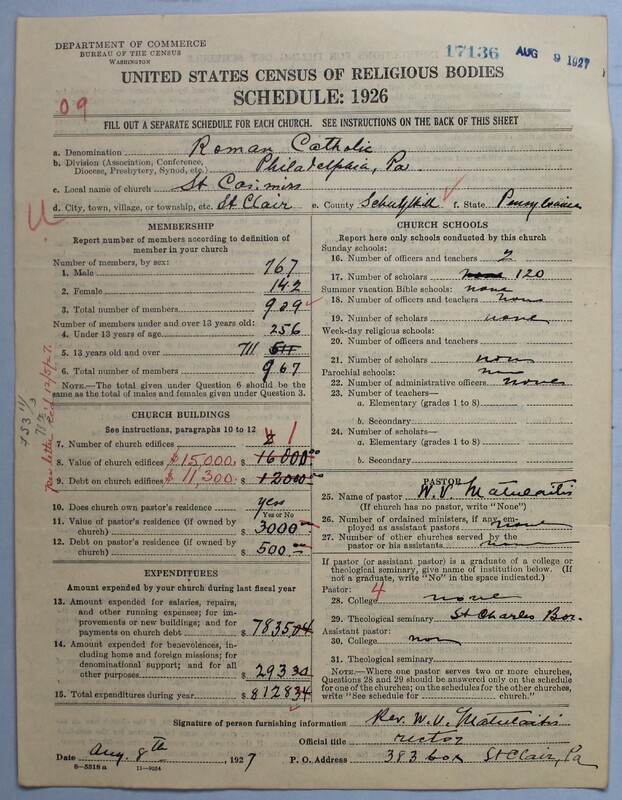 DEPARTMENT OF COMMERCE
BUREAU OF THE CENSUS
WASHINGTON
17136 AUG 9 1927
UNITED STATES CENSUS OF RELIGIOUS BODIES
SCHEDULE: 1926
09
FILL OUT A SEPARATE SCHEDULE FOR EACH CHURCH. SEE INSTRUCTIONS ON THE BACK OF THIS SHEET
a. Denomination Roman Catholic
b. Division (Association, Conference, Diocese, Presbytery, Synod, etc.) Philadelphia, Pa.
c. Local name of church St Casimirs
d. City, town, village, or township, etc. St Clair e. County Schuylkill f. State Pensylvania
MEMBERSHIP
Report number of members according to definition of
member in your church
Number of members, by sex:
1. Male 767
2. Female 142
3. Total number of members 909
Number of members under and over 13 years old:
4. Under 13 years of age 256
5. 13 years old and over 711 611
6. Total number of members 967
NOTE.—The total given under Question 6 should be
the same as the total of males and females given under Question 3.
CHURCH BUILDINGS
See instructions, paragraphs 10 to 12
7. Number of church edifices 2 1
8. Value of church edifices $15,000. $ 16000.00
9. Debt on church edifices $11,300. $ 12000
10. Does church own pastor's residence? yes
Yes or No
11. Value of pastor's residence (if owned by
church) $ 3000.00
12. Debt on pastor's residence (if owned by
church) $ 500.00
EXPENDITURES
Amount expended by your church during last fiscal year
13. Amount expended for salaries, repairs,
and other running expenses; for im-
provements or new buildings; and for
payments on church debt $ 783504
14. Amount expended for benevolences, in-
cluding home and foreign missions; for
denominational support; and for all
other purposes $ 29330
15. Total expenditures during year $ 812834
CHURCH SCHOOLS
Report here only schools conducted by this church
Sunday schools:
16. Number of officers and teachers 2
17. Number of scholars none 120
Summer vacation Bible schools: none
18. Number of officers and teachers none
19. Number of scholars none
Week-day religious schools:
20. Number of officers and teachers
21. Number of scholars none
Parochial schools:
22. Number of administrative officers none
23. Number of teachers—
a. Elementary (grades 1 to 8)
b. Secondary
24. Number of scholars—
a. Elementary (grades 1 to 8)
b. Secondary
PASTOR
25. Name of pastor W. V. Matulaitis
(If church has no pastor, write "None")
26. Number of ordained ministers, if any em-
ployed as assistant pastors none
27. Number of other churches served by the
pastor or his assistants none
If pastor (or assistant pastor) is a graduate of a college or
theological seminary, give name of institution below. (If
not a graduate, write "No" in the space indicated.)
Pastor: 4
28. College none
29. Theological seminary St Charles Bor.
Assistant pastor:
30. College non
31. Theological seminary
NOTE.—Where one pastor serves two or more churches,
Questions 28 and 29 should be answered only on the schedule
for one of the churches; on the schedules for the other churches,
write "See schedule for church."
Signature of person furnishing information Rev. W. V. Matulaitis
Official title rector
Date Aug. 8th, 1927 P. O. Address 383 box St Clair, Pa
8—5518 a 11—9234